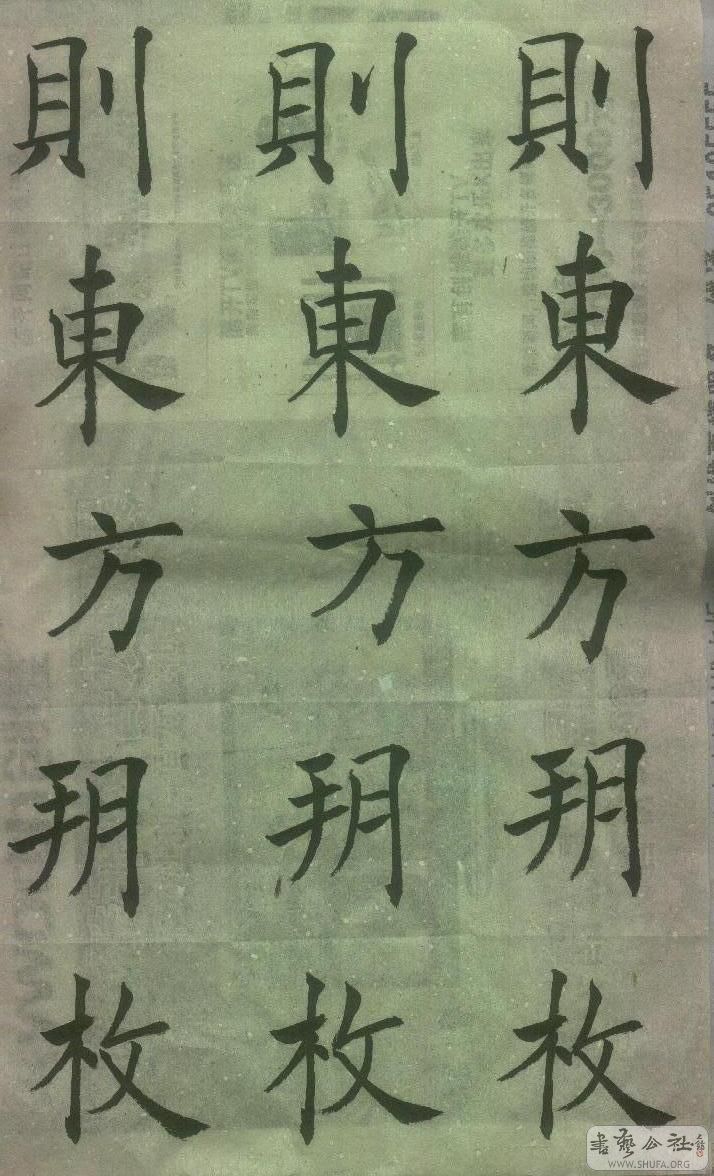 則東方朔枚
則東方朔枚
則東方朔枚
書藝公社
WWW.SHUFA.ORG